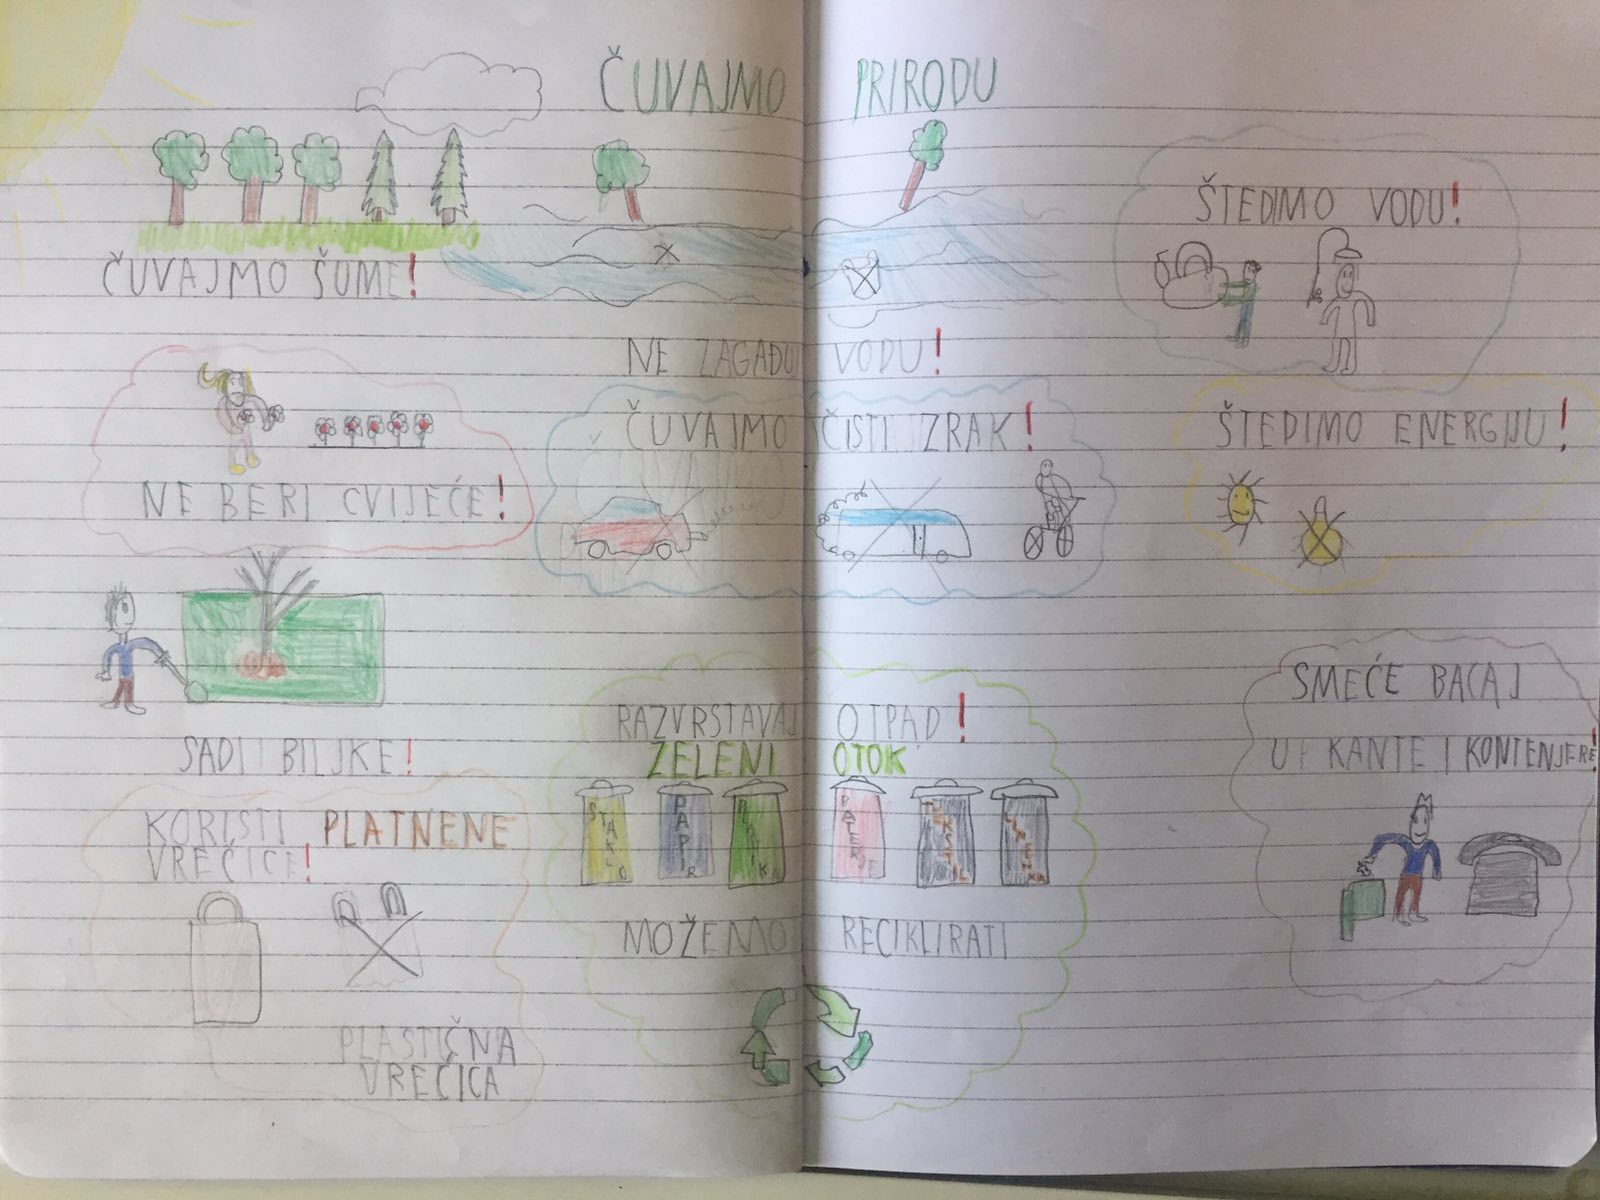 ČUVAJMO PRIRODU
ČUVAJMO ŠUME!
NE ZAGAĐUJ VODU!
ŠTEDIMO VODU!
NE BERI CVIJEĆE!
ČUVAJMO ČISTI ZRAK!
ŠTEDIMO ENERGIJU!
SADI BILJKE!
RAZVRSTAVAJ OTPAD!
ZELENI OTOK
STAKLO
PAPIR
PLASTIKA
BATERIJE
TEKSTIL
MOŽEMO RECIKLIRATI
SMEĆE BACAJ
U KANTE I KONTENJERE!
KORISTI PLATNENE
VREČICE!
PLASTIČNA
VREČICA